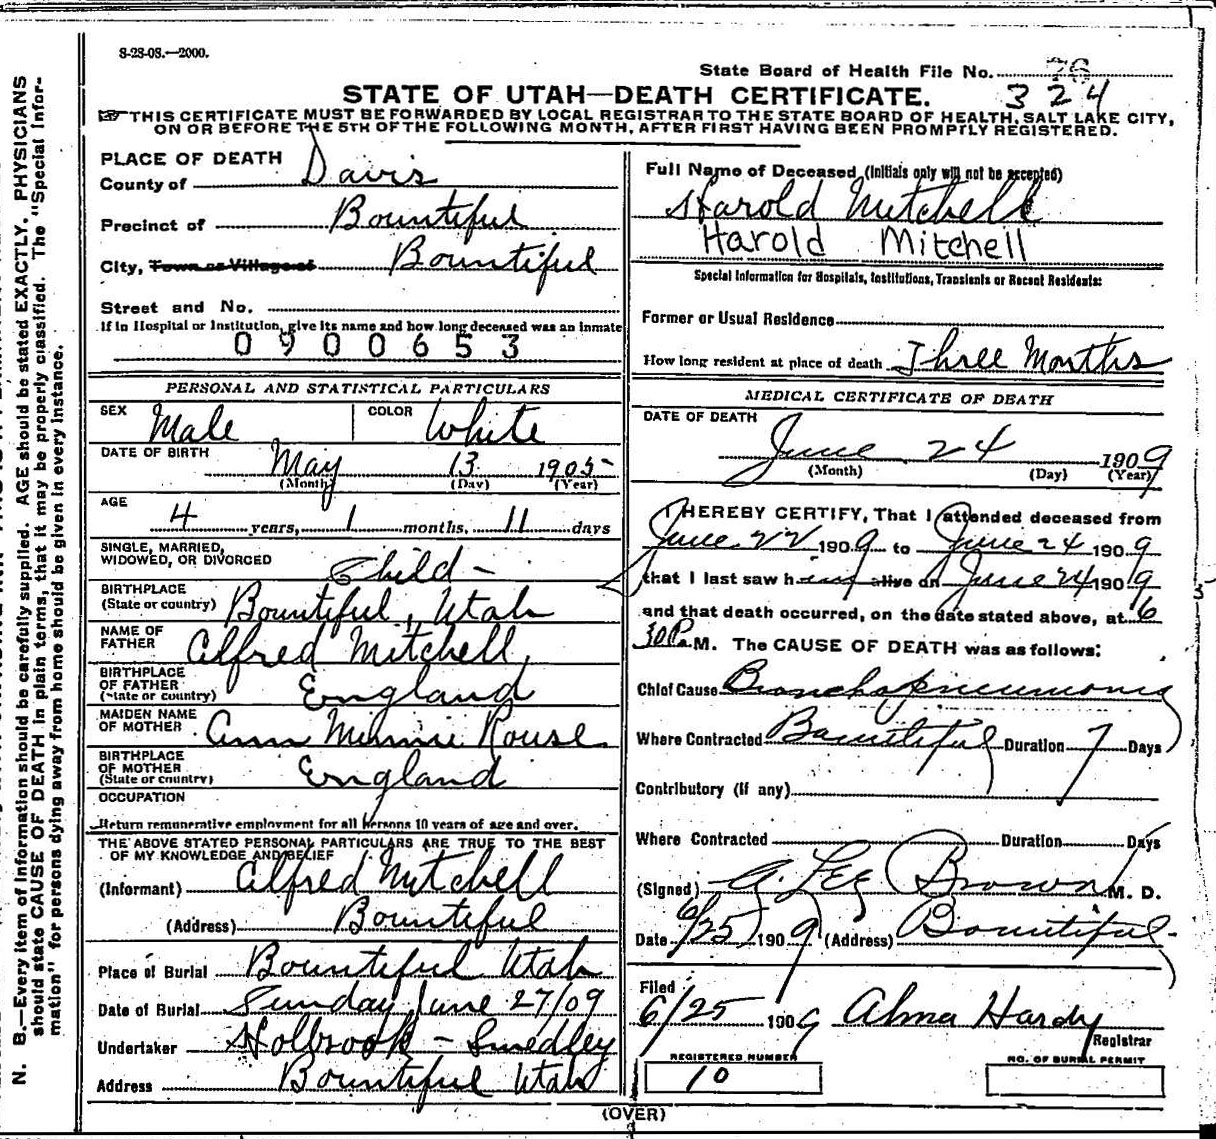 8-28-08.—2000.
State Board of Health File No. 76
324
STATE OF UTAH—DEATH CERTIFICATE.
THIS CERTIFICATE MUST BE FORWARDED BY LOCAL REGISTRAR TO THE STATE BOARD OF HEALTH, SALT LAKE CITY,
ON OR BEFORE THE 5TH OF THE FOLLOWING MONTH, AFTER FIRST HAVING BEEN PROMPTLY REGISTERED.
PLACE OF DEATH
County of Davis
Precinct of Bountiful
City, Town or Village of Bountiful
Street and No.
If in Hospital or Institution, give its name and how long deceased was an inmate
0900653
PERSONAL AND STATISTICAL PARTICULARS
SEX Male COLOR White
DATE OF BIRTH May 13 1905
(Month) (Day) (Year)
AGE
4 years, 1 months, 11 days
SINGLE, MARRIED,
WIDOWED, OR DIVORCED Child -
BIRTHPLACE
(State or country) Bountiful, Utah
NAME OF
FATHER Alfred Mitchell,
BIRTHPLACE
OF FATHER
(State or country) England
MAIDEN NAME
OF MOTHER Ann Minnie Rouse
BIRTHPLACE
OF MOTHER
(State or country) England
OCCUPATION
Return remunerative employment for all persons 10 years of age and over.
THE ABOVE STATED PERSONAL PARTICULARS ARE TRUE TO THE BEST
OF MY KNOWLEDGE AND BELIEF
(Informant) Alfred Mitchell
(Address) Bountiful
Place of Burial Bountiful Utah
Date of Burial Sunday June 27/09
Undertaker Holbrook - Smedley
Address Bountiful Utah
Full Name of Deceased (Initials only will not be accepted)
Harold Mitchell
Harold Mitchell
Special Information for Hospitals, Institutions, Transients or Recent Residents:
Former or Usual Residence
How long resident at place of death Three Months
MEDICAL CERTIFICATE OF DEATH
DATE OF DEATH
June 24 1909
(Month) (Day) (Year)
I HEREBY CERTIFY, That I attended deceased from
June 22 1909 to June 24 1909
that I last saw him alive on June 24 1909
and that death occurred, on the date stated above, at 6
30 P. M. The CAUSE OF DEATH was as follows:
Chief Cause Bronchopneumonia
Where Contracted Bountiful Duration 7 Days
Contributory (if any)
Where Contracted Duration Days
(Signed) G. Lee Brown M. D.
Date 6/25 1909 (Address) Bountiful
Filed
6/25 1909 Alma Hardy
Registrar
REGISTERED NUMBER
10
NO. OF BURIAL PERMIT
(OVER)
N. B.—Every item of information should be carefully supplied. AGE should be stated EXACTLY. PHYSICIANS
should state CAUSE OF DEATH in plain terms, that it may be properly classified. The "Special Infor-
mation" for persons dying away from home should be given in every instance.